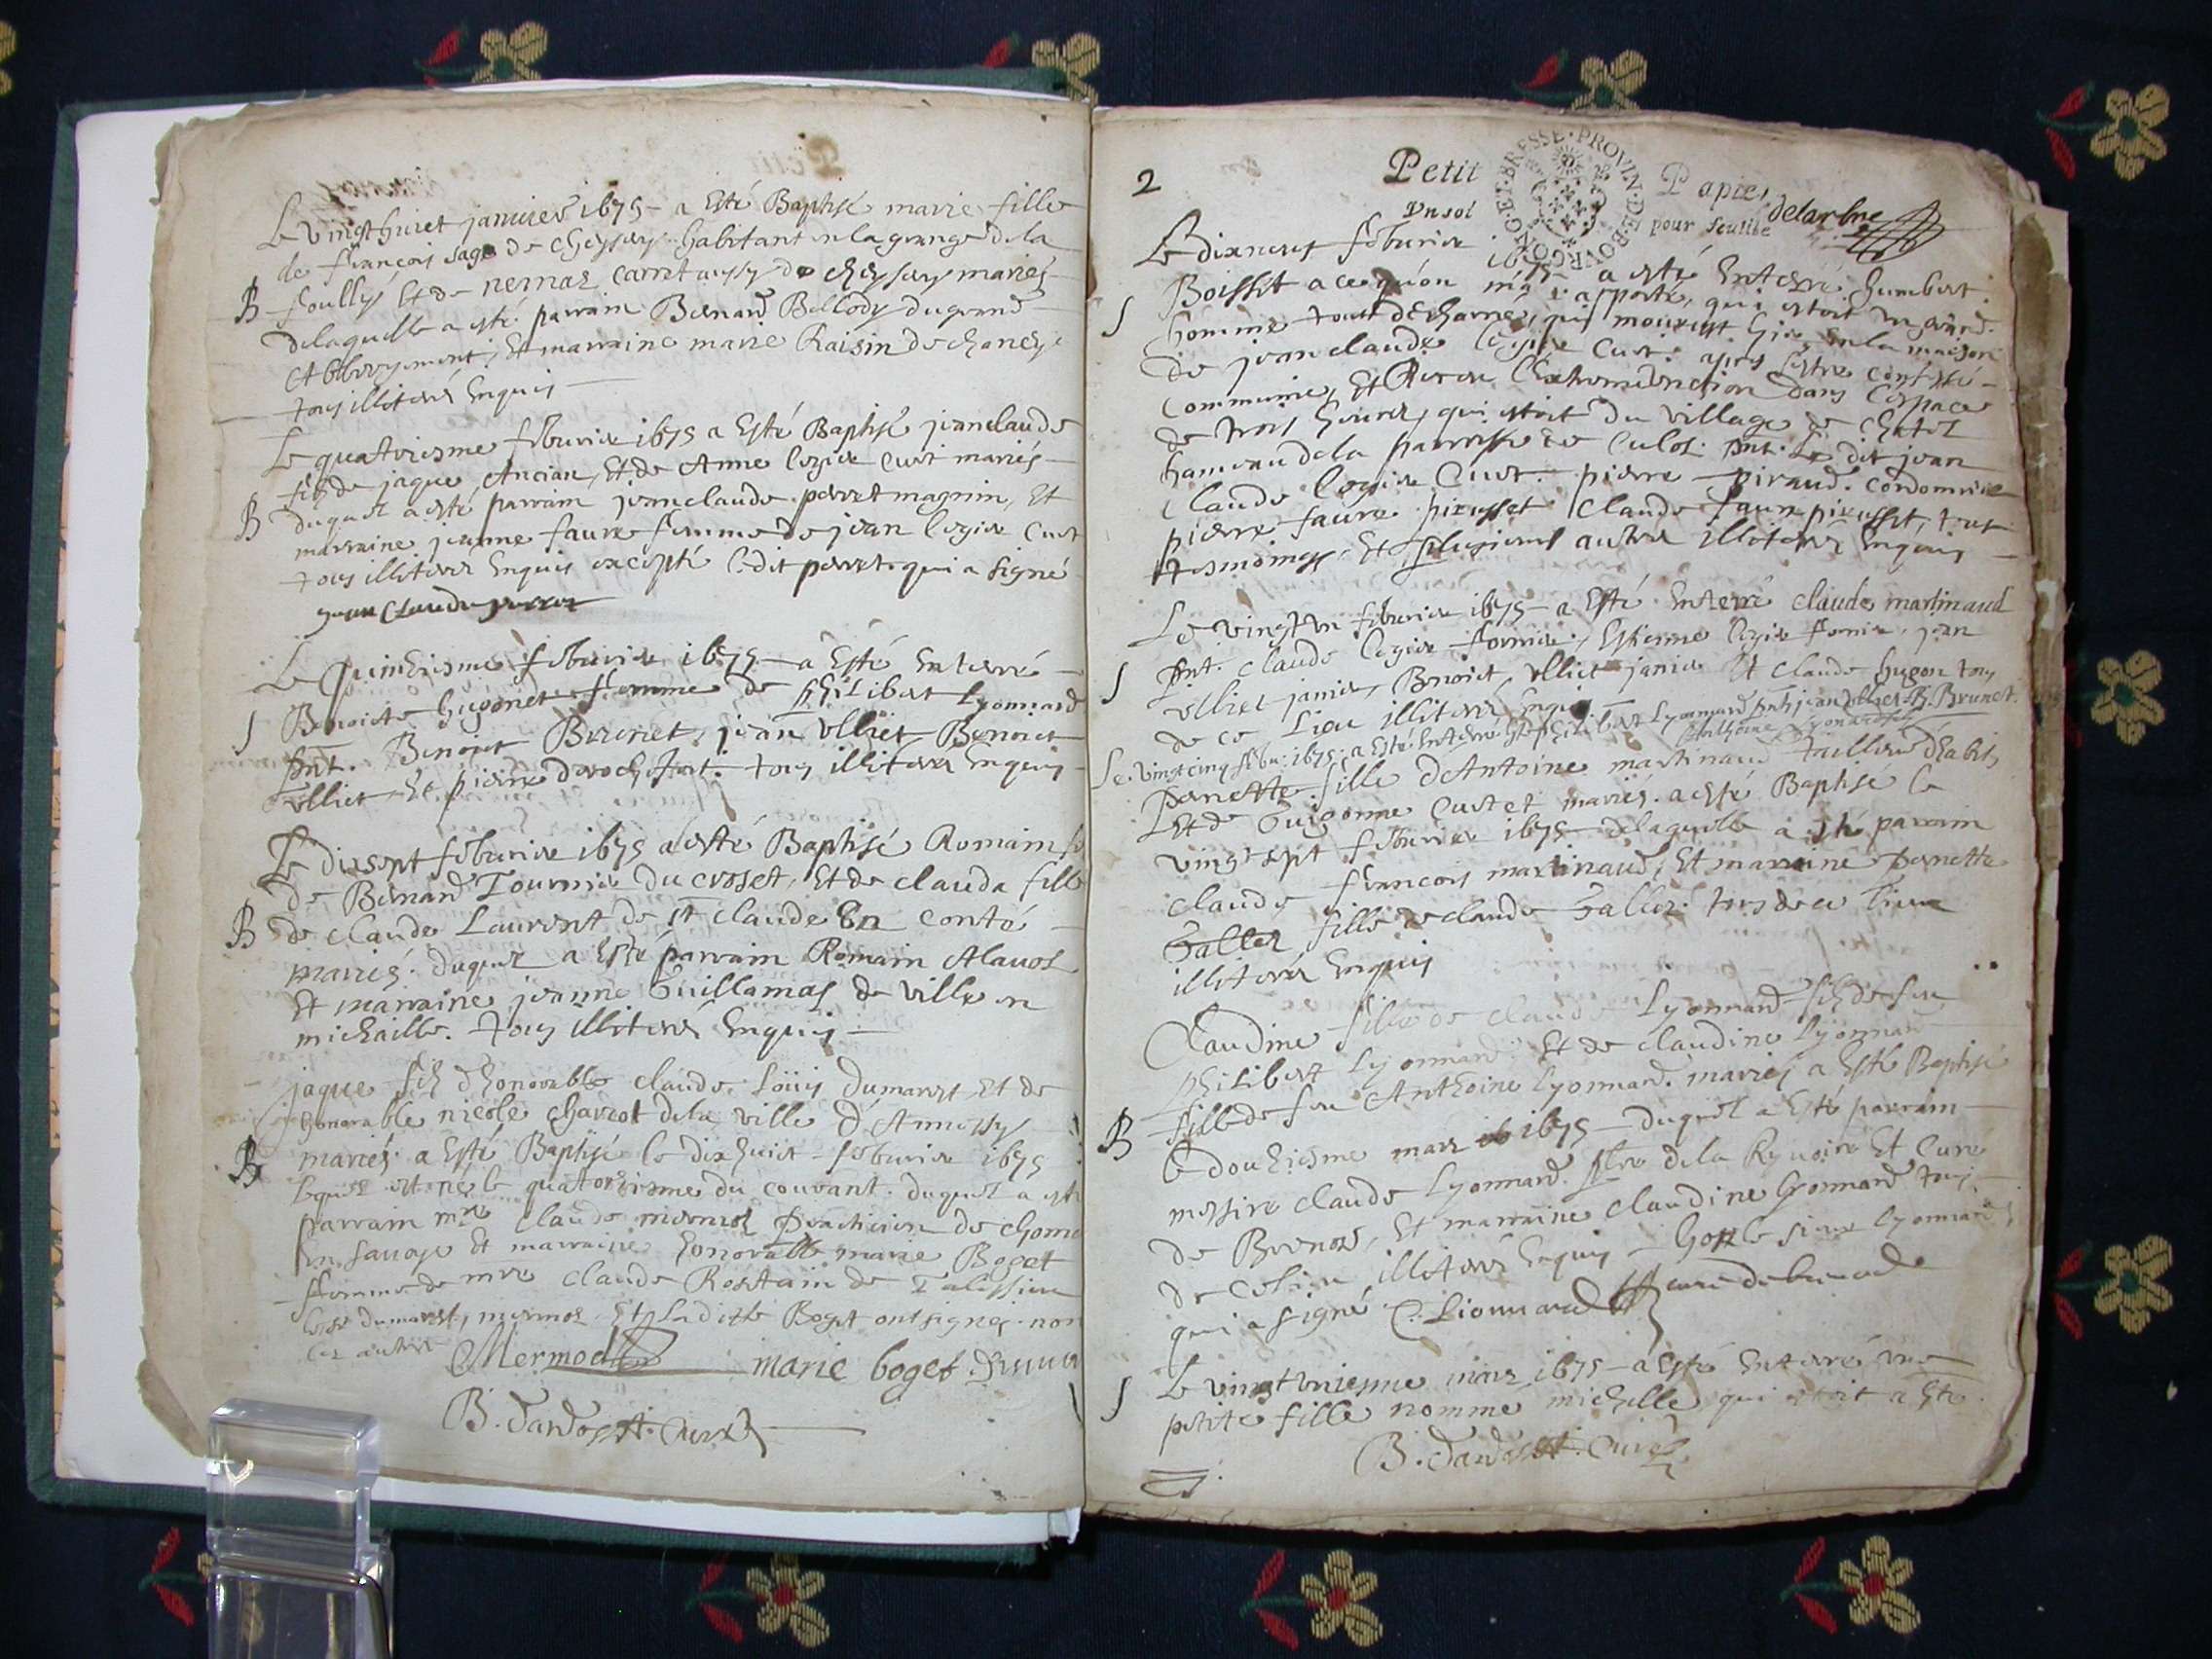 Le vingt huict janvier 1675 a Esté Baptisé marie fille
de françois sage de cheysery habitant en la grange de la
B foullyé Et de carret aussy de cheysery mariés
de laquelle a esté parrain Bernard Bellody du grand
Abbergement, Et marraine marie Raisin de chaney
tous illiterés Enquis
Le quatriesme feburier 1675 a Esté Baptisé jean claude
fils de jaque Ancian, Et de Anne legier Curt mariés
B duquel a esté parrain jean claude perret magnin, Et
marraine jeanne faure femme de jean legier Curt
tous illiterés Enquis excepté ledit perret qui a signé
jean Claude perret
Le quinziesme feburier 1675 a Esté Enterré
S Benoiste hugonet femme de philibert Lyonnard
pnt. Benoist Brunet, jean ulliet Benoist
ulliet Et pierre derochefort tous illiterés Enquis
Le dixsept feburier 1675 a esté Baptisé Romain
de Bernard Tournier du croset, Et de clauda fille
B de claude Laurent de st claude En conté
mariés. duquel a Esté parrain Romain
Et marraine jeanne Guillamas de ville en
michaille. tous illiterés Enquis
jaque fils d'honorable claude Loüis dumarest Et de
honorable nicole charcot de la ville d'Annessy
B mariés a Esté Baptisé le dix huict feburier 1675
lequel est né le quatorziesme du courant. duquel a esté
parrain mre claude mermoz practicien de
En Savoye Et marraine honorable marie Boget
femme de mre claude Rostain de Talissieu
dumarest, mermoz Et Ladite Boget ont signés non
les autres
Mermod marie boget
B. Dardosst. Curé
2 Petit Papier
Un sol pour feuille delarbre
Le dixneuf feburier 1675 a esté Enterré humbert
S Boisset a ce qu'on m'a raporté, qui estoit un grand
homme tout décharné, qui mourut hier En la maison
de jean claude legier Curt. apres s'estre confessé
communié Et Receu l'Extremeonction dans l'espace
de trois heures, qui estoit du village de chatel
hameau de la parroisse de Culos pnt. Le dit jean
claude legier Curt. pierre piraud. cordonnier
pierre faure pirasset claude faure pirasset, tous
tesmoings. Et plusieurs autres illiterés Enquis
Le vingt un feburier 1675 a Esté Enterré claude martinaud
S pnt. claude legier fornier, Estienne legier fornier jean
ulliet janier, Benoist ulliet janier Et claude hugon tous
de ce Lieu illiterés Enquis
Le vingtcinq febu: 1675, a Esté Enterré philibert Lyonnard pnts jean ulliet B. Brunet.
Anthoine Lyonard
Pernette fille d'Antoine martinaud tallieur d'habits
Et de Guigonne Curtet mariés. a Esté Baptisé le
vingt sept febvrier 1675 de laquelle a esté parrain
claude francois martinaud, Et marraine pernette
Galler fille de claude Galler tous de ce Lieux
illiterés Enquis
Claudine fille de claude Lyonnard fils de feu
philibert Lyonnard Et de claudine Lyonnard
fille de feu Anthoine Lyonnard mariés a Esté Baptisé
B le douziesme mars 1675 duquel a Esté parrain
messire claude Lyonnard pbre de la Et Curé
de Brenod, Et marraine claudine Lyonnard tous
de ce Lieu illiterés Enquis hors le sieur Lyonnard
qui a signé C. Lionnard curé de brenod
S Le vingt uniesme mars 1675 a Esté Enterré une
petite fille nomme michelle qui estoit a Ste
B. Dardosst. Curé